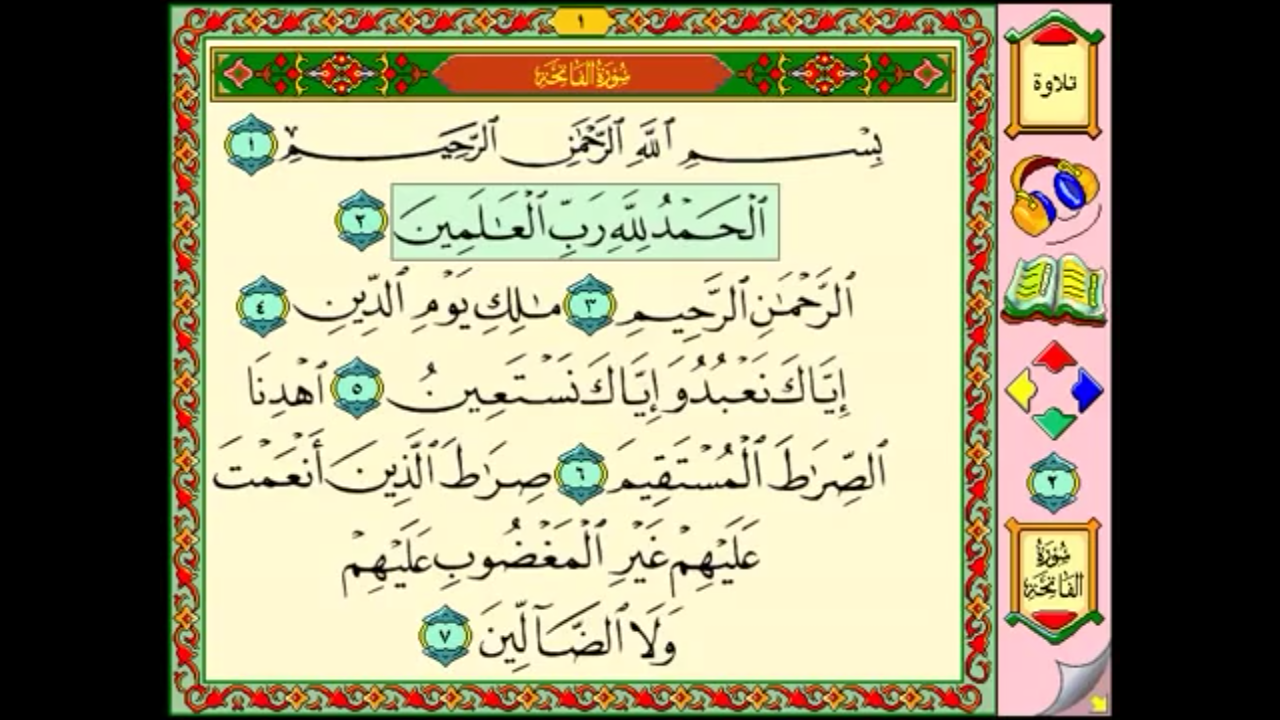 ١
سُورَةُ الفَاتِحَةِ
بِسْمِ ٱللَّهِ ٱلرَّحْمَٰنِ ٱلرَّحِيمِ ١
ٱلْحَمْدُ لِلَّهِ رَبِّ ٱلْعَٰلَمِينَ ٢
ٱلرَّحْمَٰنِ ٱلرَّحِيمِ ٣ مَٰلِكِ يَوْمِ ٱلدِّينِ ٤
إِيَّاكَ نَعْبُدُ وَإِيَّاكَ نَسْتَعِينُ ٥ ٱهْدِنَا
ٱلصِّرَٰطَ ٱلْمُسْتَقِيمَ ٦ صِرَٰطَ ٱلَّذِينَ أَنْعَمْتَ
عَلَيْهِمْ غَيْرِ ٱلْمَغْضُوبِ عَلَيْهِمْ
وَلَا ٱلضَّآلِّينَ ٧
تلاوة
٢
سُورَةُ الفَاتِحَةِ